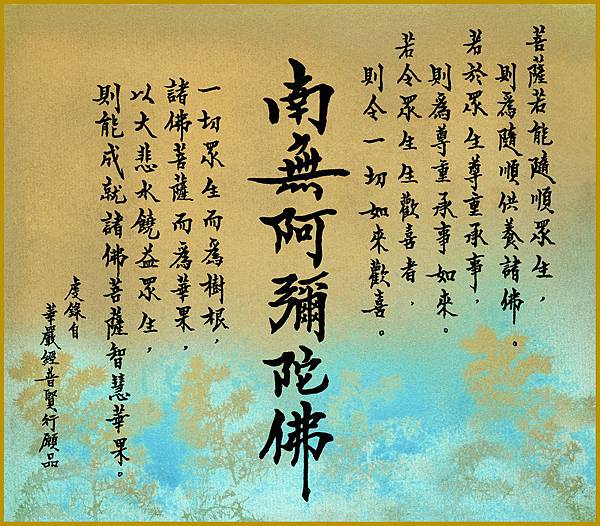 菩薩若能隨順眾生，
則為隨順供養諸佛。
若於眾生尊重承事，
則為尊重承事如來。
若令眾生生歡喜者，
則令一切如來歡喜。
南無阿彌陀佛
一切眾生而為樹根，
諸佛菩薩而為華果，
以大悲水饒益眾生，
則能成就諸佛菩薩智慧華果。
虔錄自
華嚴經普賢行願品